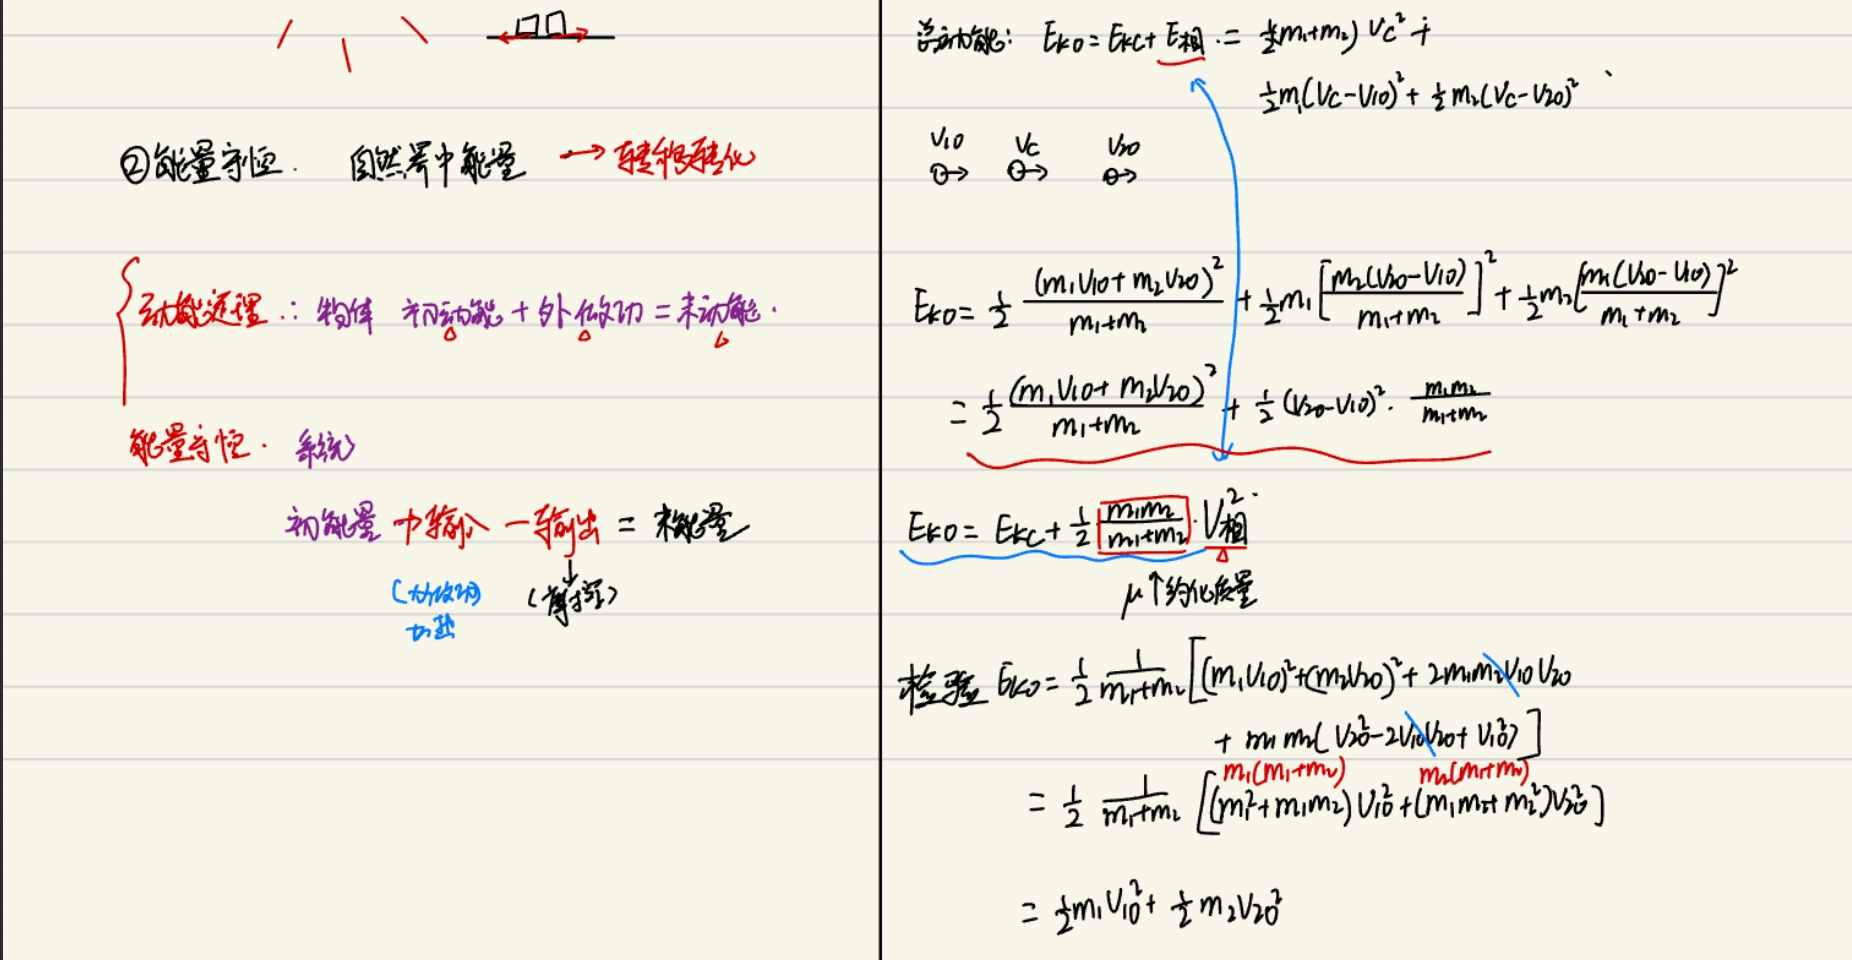 ②能量守恒. 自然界中能量 → 转移转化
动能定理: 物体 初动能 + 外做功 = 末动能.
能量守恒. 系统
初能量 + 输入 - 输出 = 末能量
(摩擦)
总动能: Eko = Ekc + E相 = ½(m₁+m₂) Vc² +
½m₁(Vc-V₁₀)² + ½m₂(Vc-V₂₀)²
V₁₀ Vc V₂₀
Eko = ½ (m₁V₁₀+m₂V₂₀)²/(m₁+m₂) + ½m₁[m₂(V₂₀-V₁₀)/(m₁+m₂)]² + ½m₂[m₁(V₂₀-V₁₀)/(m₁+m₂)]²
= ½ (m₁V₁₀+m₂V₂₀)²/(m₁+m₂) + ½(V₂₀-V₁₀)² · m₁m₂/(m₁+m₂)
Eko = Ekc + ½ m₁m₂/(m₁+m₂) · V相².
μ↑约化质量
检验 Eko = ½ 1/(m₁+m₂) [(m₁V₁₀)²+(m₂V₂₀)²+2m₁m₂V₁₀V₂₀
+ m₁m₂(V₂₀²-2V₁₀V₂₀+V₁₀²)]
m₁(m₁+m₂) m₂(m₁+m₂)
= ½ 1/(m₁+m₂) [(m₁²+m₁m₂)V₁₀²+(m₁m₂+m₂²)V₂₀²]
= ½m₁V₁₀² + ½m₂V₂₀²